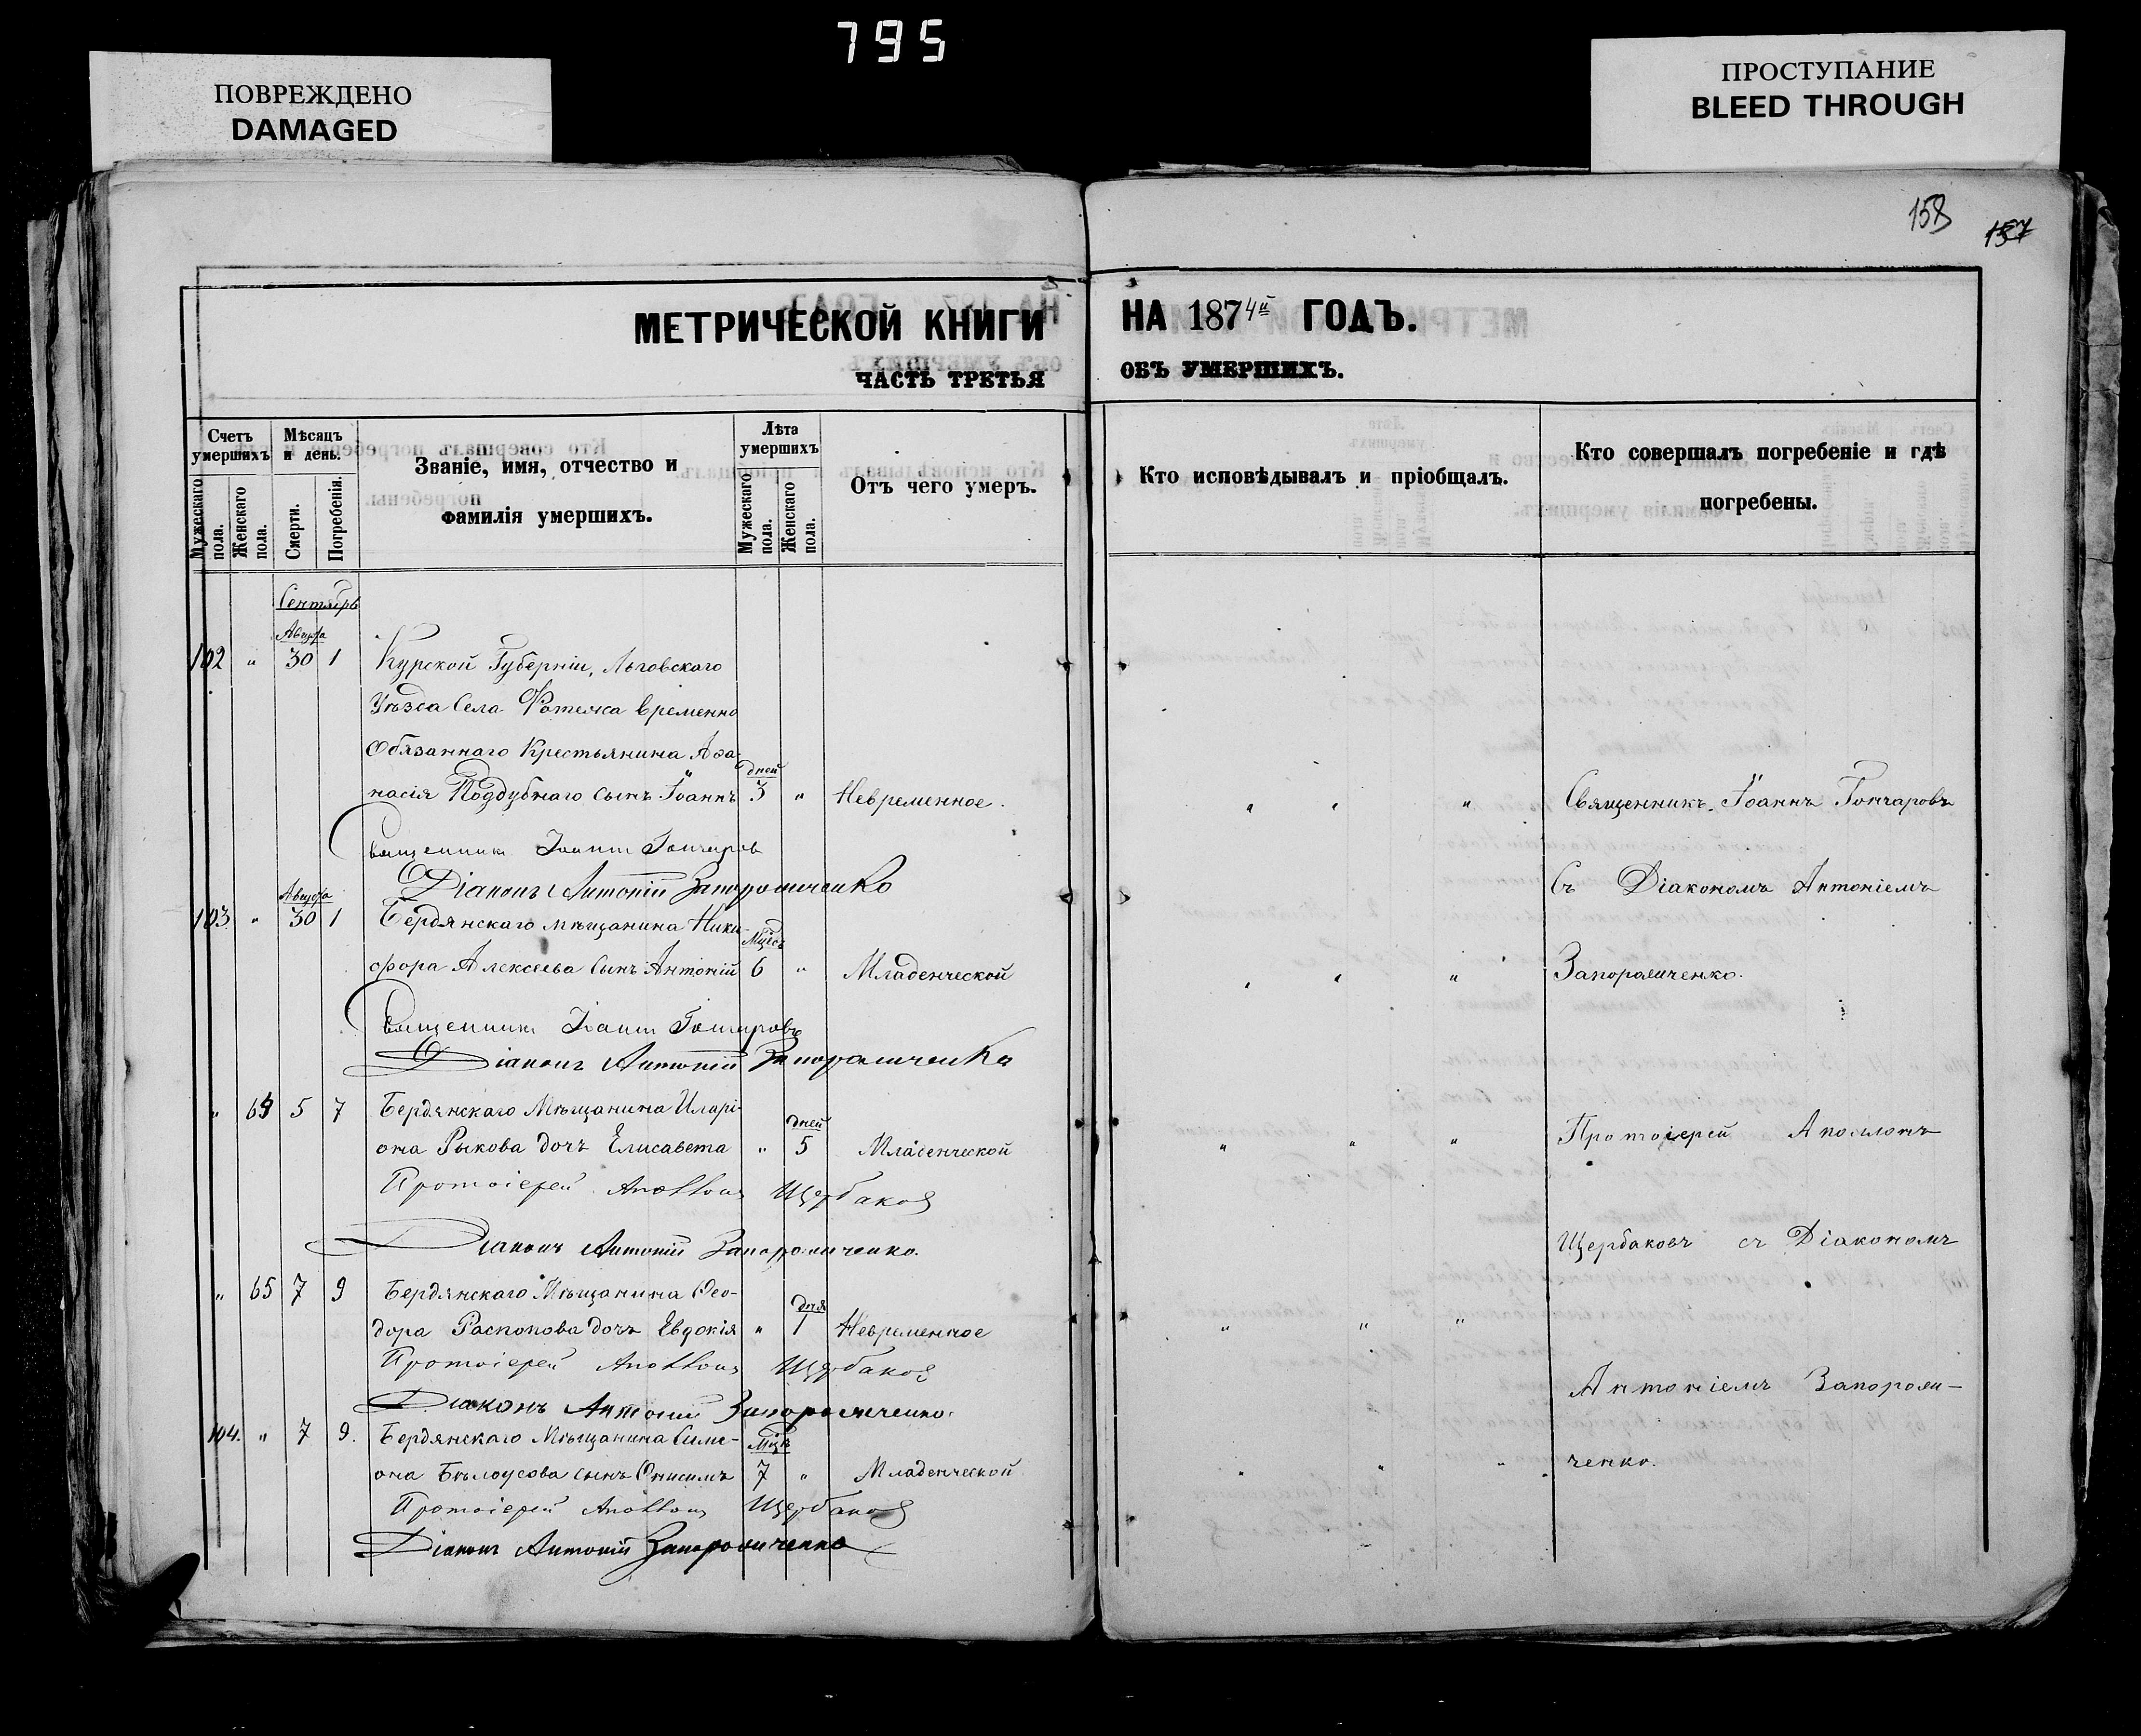 795
ПОВРЕЖДЕНО
DAMAGED
ПРОСТУПАНИЕ
BLEED THROUGH
158
157
МЕТРИЧЕСКОЙ КНИГИ
ЧАСТЬ ТРЕТЬЯ
НА 1874й ГОДЪ.
ОБЪ УМЕРШИХЪ.
Счетъ умершихъ
Мужескаго пола.
Женскаго пола.
Мѣсяцъ и день.
Смерти.
Погребенія.
Званіе, имя, отчество и
фамилія умершихъ.
Лѣта умершихъ
Мужескаго пола.
Женскаго пола.
Отъ чего умеръ.
Кто исповѣдывалъ и пріобщалъ.
Кто совершалъ погребеніе и гдѣ
погребены.
Сентябрь
Августа
102 " 30 1 Курской Губерніи, Льговскаго
Уѣзда Села временно
Обязаннаго Крестьянина Аѳа-
дней
насія Поддубнаго сынъ Іоаннъ 3 " Невременное. " " " Священникъ Іоаннъ Гончаровъ
Священникъ Іоаннъ Гончаровъ
Діаконъ Антоній Запорожченко
Съ Діакономъ Антоніемъ
Августа
103. " 30 1 Бердянскаго мѣщанина Ники-
Мѣсе
фора Алексеева сынъ Антоній 6 " Младенческой " " " Запорожченко.
Священникъ Іоаннъ Гончаровъ
Діаконъ Антоній Запорожченко
" 64 5 7 Бердянскаго Мѣщанина Иларі-
дней
она Рыкова дочь Елисавета " 5 Младенческой " " " Протоіерей Аполлонъ
Протоіерей Аполлонъ Щербаковъ
Діаконъ Антоній Запорожченко.
Щербаковъ съ Діакономъ
" 65 7 9 Бердянскаго Мѣщанина Ѳео-
дня
дора Распопова дочь Евдокія " 1 Невременное " " "
Протоіерей Аполлонъ Щербаковъ
Діаконъ Антоній Запорожченко.
Антоніемъ Запорож-
104. " 7 9. Бердянскаго Мѣщанина Симе-
она Бѣлоусова сынъ Онисимъ 7 " Младенческой " " " ченко.
Протоіерей Аполлонъ Щербаковъ
Діаконъ Антоній Запорожченко